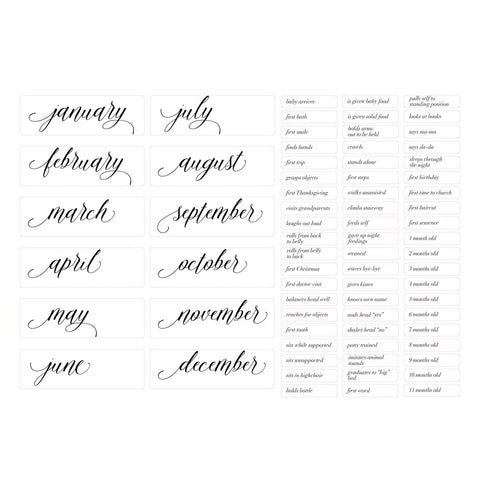 january
february
march
april
may
june
july
august
september
october
november
december
baby arrives
first bath
first smile
finds hands
first trip
grasps objects
first Thanksgiving
visits grandparents
laughs out loud
rolls from back
to belly
rolls from belly
to back
first Christmas
first doctor visit
balances head well
reaches for objects
first tooth
sits while supported
sits unsupported
sits in highchair
holds bottle
is given baby food
is given solid food
holds arms
out to be held
crawls
stands alone
first steps
walks unassisted
climbs stairway
feeds self
gave up night
feedings
weaned
waves bye-bye
gives kisses
knows own name
nods head "yes"
shakes head "no"
potty trained
imitates animal
sounds
graduates to "big"
bed
first word
pulls self to
standing position
looks at books
says ma-ma
says da-da
sleeps through
the night
first birthday
first time to church
first haircut
first sentence
1 month old
2 months old
3 months old
4 months old
5 months old
6 months old
7 months old
8 months old
9 months old
10 months old
11 months old